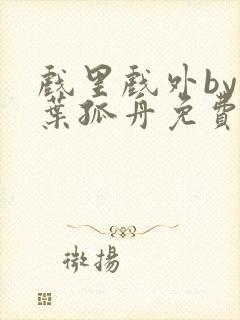 戲里戲外by
葉孤舟免費
微揚